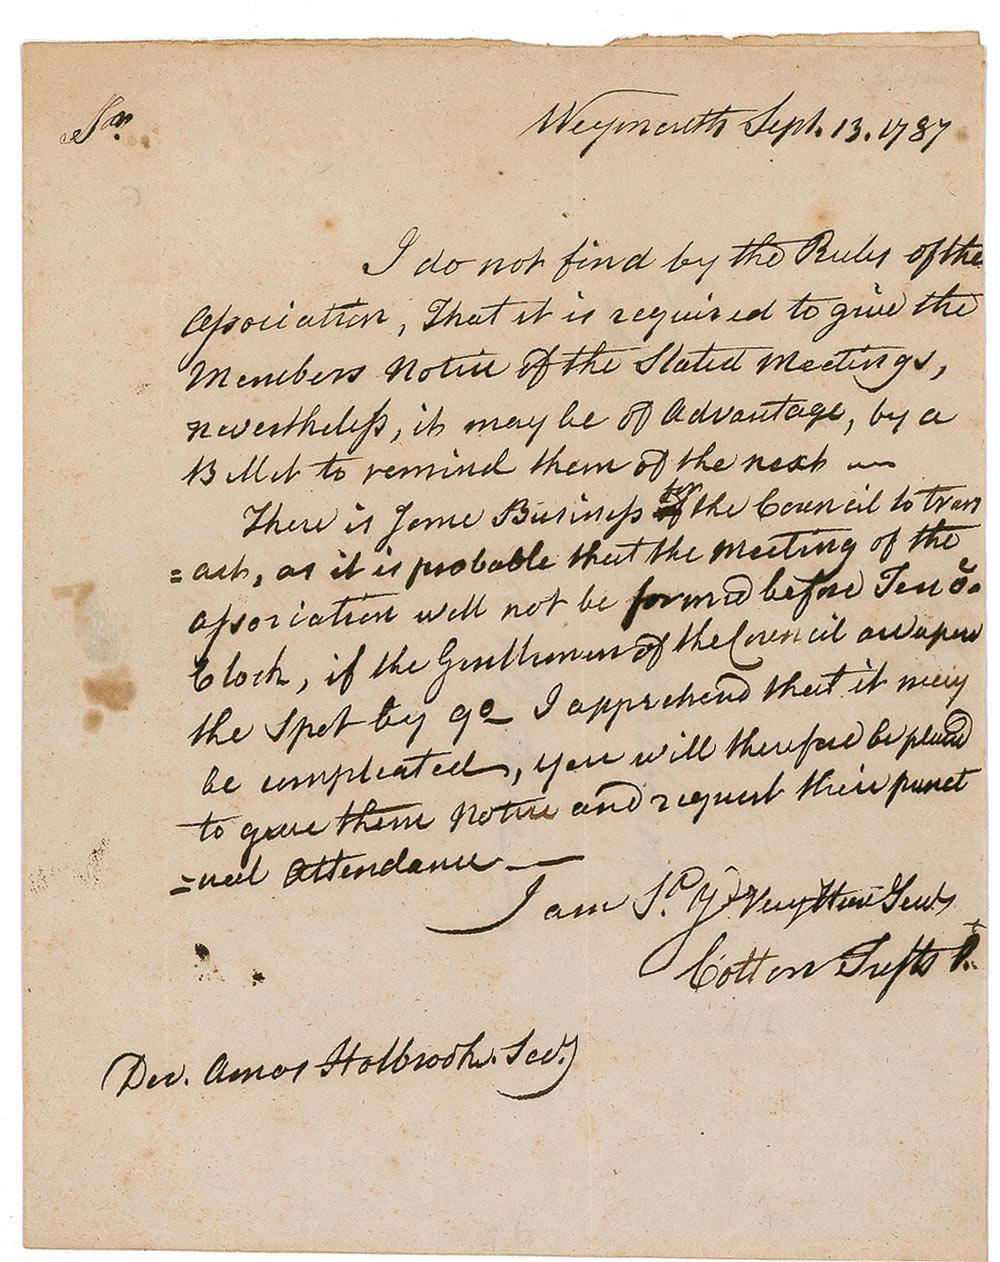 Sir
Weymouth Sept. 13. 1787
I do not find by the Rules of the
Association, That it is required to give the
Members Notice of the Stated Meetings,
nevertheless, it may be of Advantage, by a
Billet to remind them of the next —
There is some Business for the Council to trans
=act, as it is probable that the Meeting of the
Association will not be formed before Ten o
Clock, if the Gentlemen of the Council are upon
the Spot by 9o I apprehend that it may
be compleated, you will therefore be pleasd
to give them Notice and request their punct
=ual Attendance —
I am Sr. Yr Very Hue Servt
Cotton Tufts Pt.
Doc. Amos Holbrook. Secy.